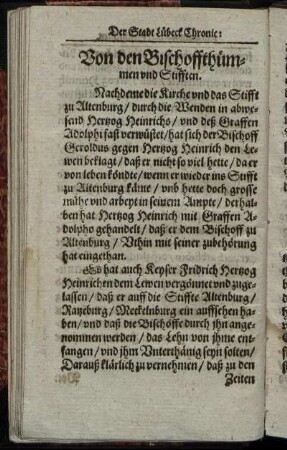 Der Stadt Lübeck Chronic:
Von den Bischoffthüm-
men vnd Stifften.
Nachdeme die Kirche vnd das Stifft
zu Altenburg / durch die Wenden in abwe-
send Hertzog Heinrichs / vnd deß Graffen
Adolphi fast verwüstet / hat sich der Bischoff
Geroldus gegen Hertzog Heinrich den Le-
wen beklagt / daß er nicht so viel hette / da er
von leben köndte / wenn er wieder ins Stifft
zu Altenburg käme / vnd hette doch grosse
mühe vnd arbeyt in seinem Ampte / derhal-
ben hat Hertzog Heinrich mit Graffen A-
dolpho gehandelt / daß er dem Bischoff zu
Altenburg / Vthin mit seiner zubehörung
hat eingethan.
Es hat auch Keyser Fridrich Hertzog
Heinrichen dem Lewen vergönnet vnd zuge-
lassen / daß er auff die Stiffte Altenburg /
Ratzeburg / Meckelnburg ein auffsehen ha-
ben / vnd daß die Bischöffe durch ihn ange-
nommen werden / das Lehn von ihme ent-
fangen / vnd ihm Vnterthänig seyn solten /
Darauß klärlich zu vernehmen / daß zu den
Zeiten